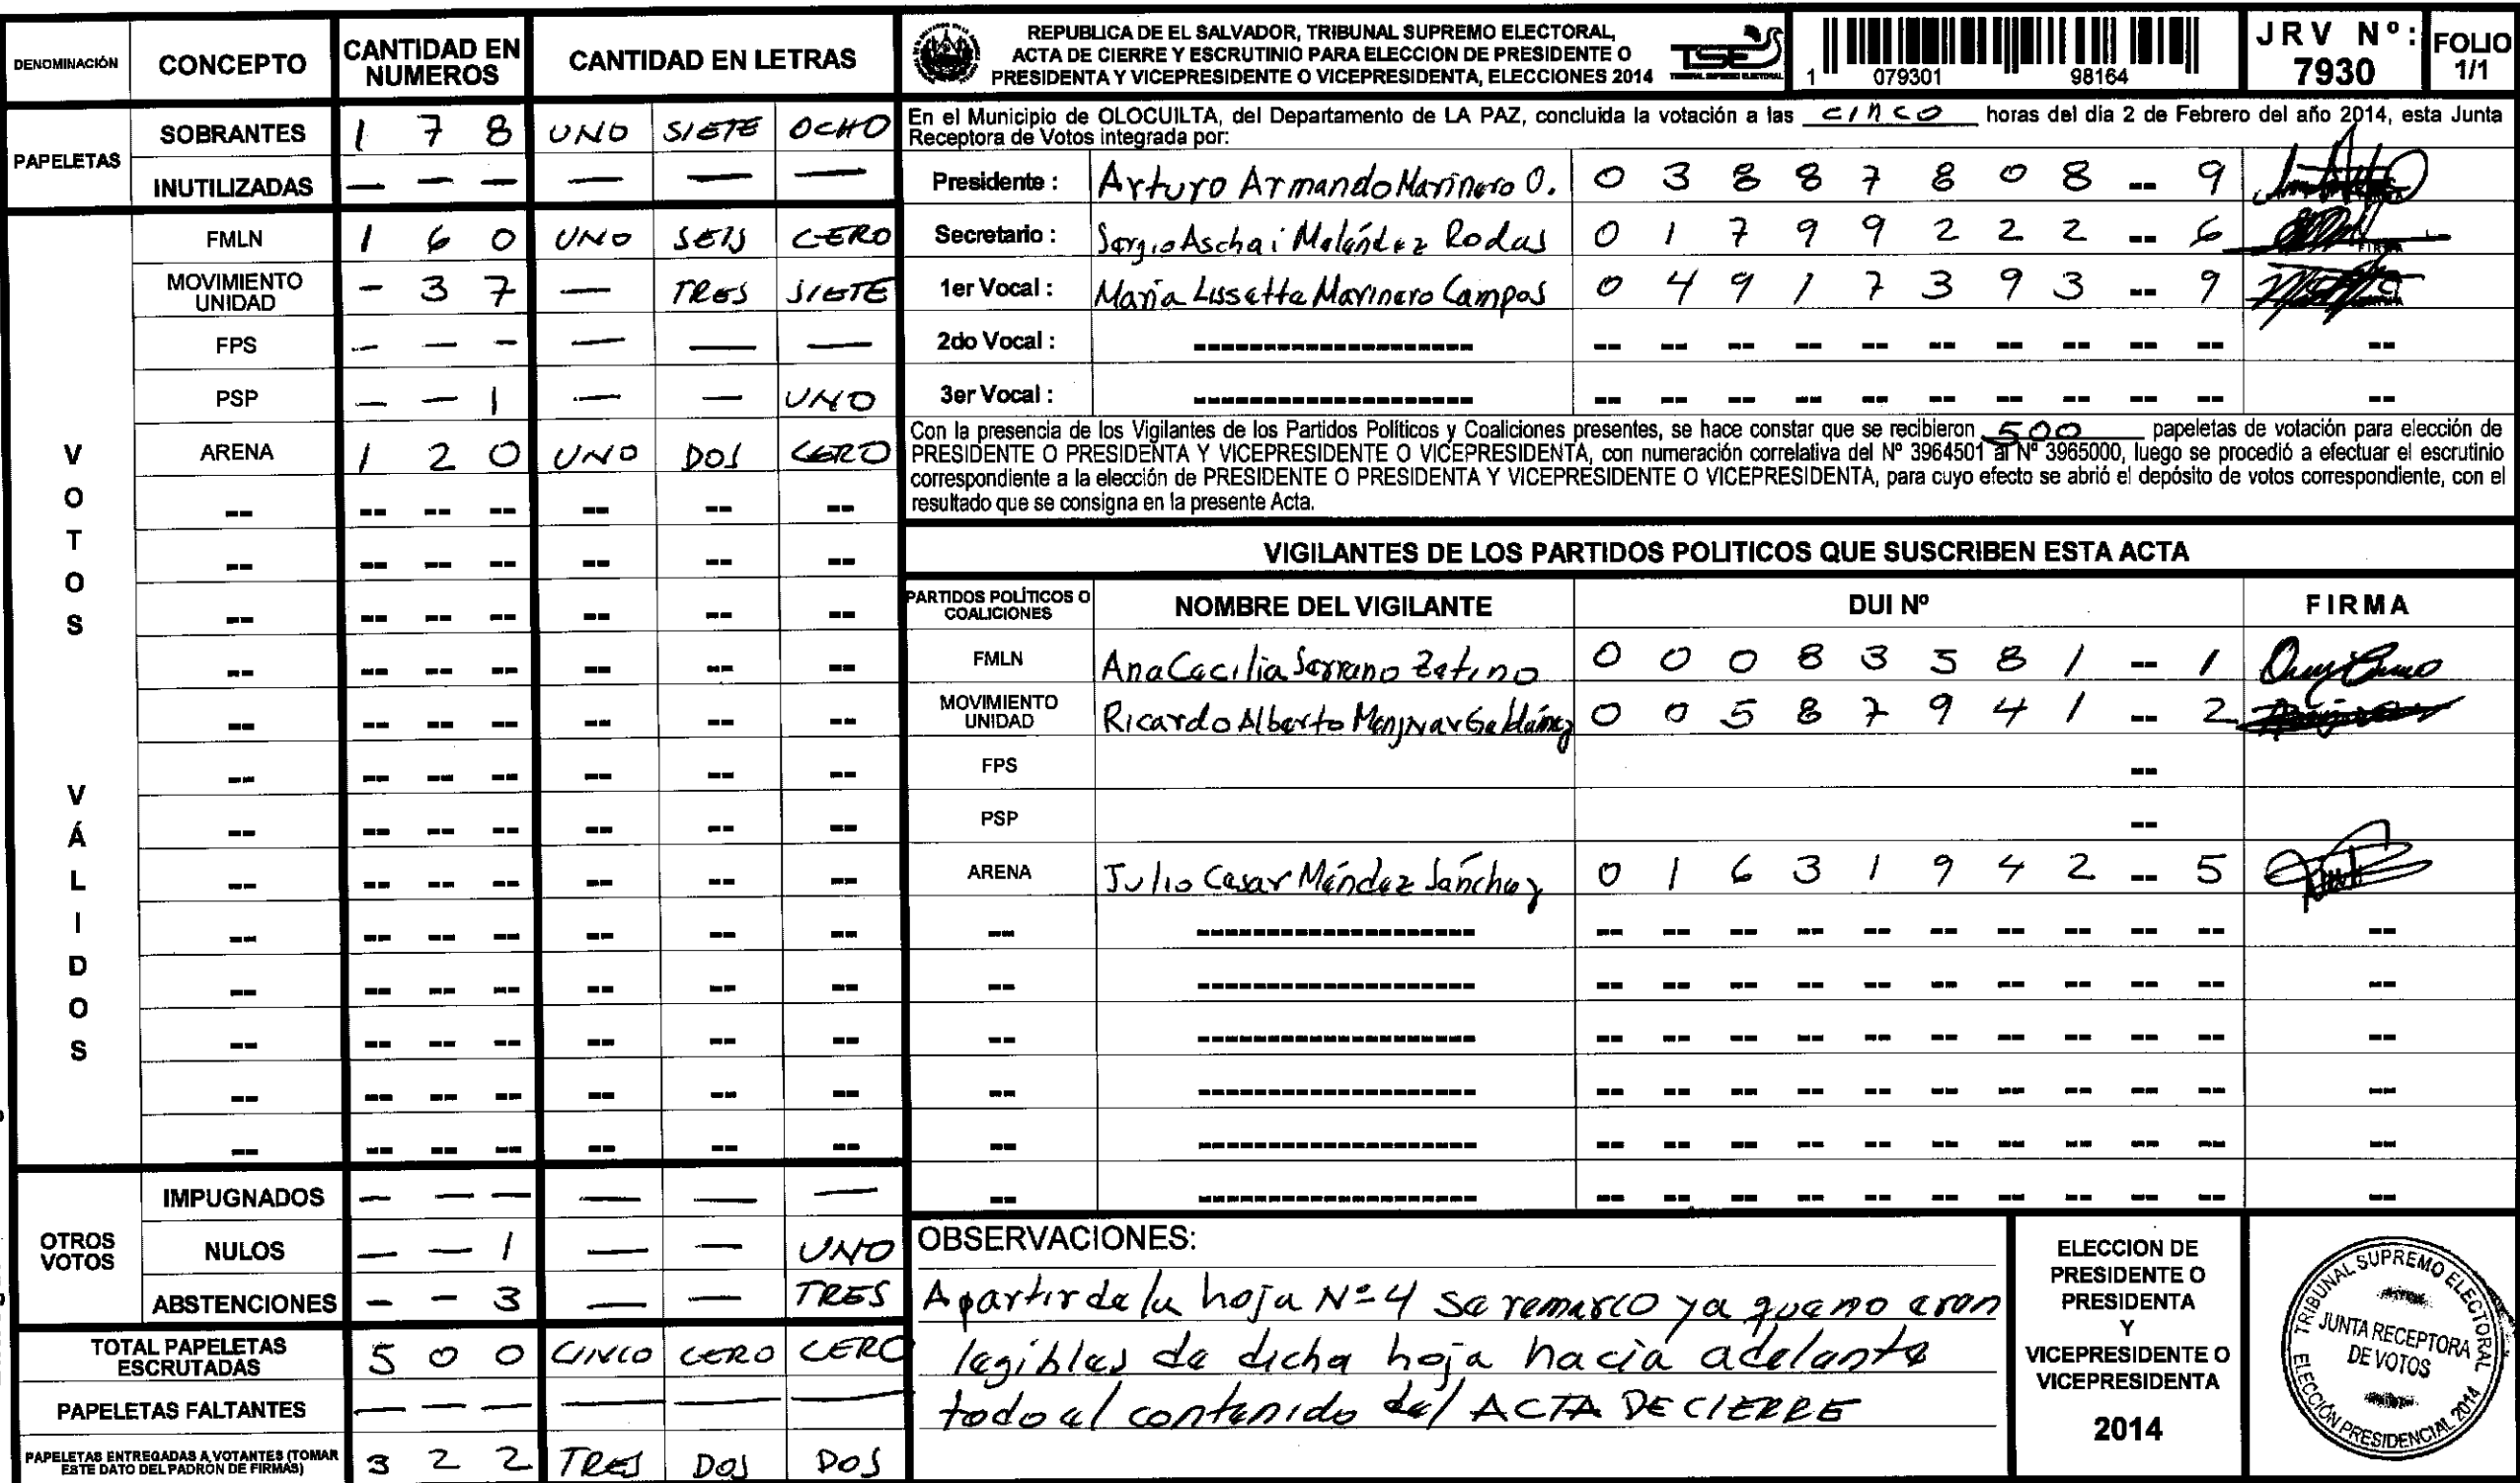 DENOMINACIÓN CONCEPTO CANTIDAD EN NUMEROS CANTIDAD EN LETRAS
PAPELETAS
SOBRANTES 1 7 8 UNO SIETE OCHO
INUTILIZADAS — — — — — —
VOTOS VÁLIDOS
FMLN 1 6 0 UNO SEIS CERO
MOVIMIENTO UNIDAD - 3 7 — TRES SIETE
FPS — — — — — —
PSP — — 1 — — UNO
ARENA 1 2 0 UNO DOS CERO
-- -- -- -- -- -- --
-- -- -- -- -- -- --
-- -- -- -- -- -- --
-- -- -- -- -- -- --
-- -- -- -- -- -- --
-- -- -- -- -- -- --
-- -- -- -- -- -- --
-- -- -- -- -- -- --
-- -- -- -- -- -- --
-- -- -- -- -- -- --
-- -- -- -- -- -- --
-- -- -- -- -- -- --
-- -- -- -- -- -- --
OTROS VOTOS
IMPUGNADOS — — — — — —
NULOS — — 1 — — UNO
ABSTENCIONES — - 3 — — TRES
TOTAL PAPELETAS ESCRUTADAS 5 0 0 CINCO CERO CERO
PAPELETAS FALTANTES — — — — — —
PAPELETAS ENTREGADAS A VOTANTES (TOMAR ESTE DATO DEL PADRÓN DE FIRMAS) 3 2 2 TRES DOS DOS
REPUBLICA DE EL SALVADOR, TRIBUNAL SUPREMO ELECTORAL,
ACTA DE CIERRE Y ESCRUTINIO PARA ELECCION DE PRESIDENTE O
PRESIDENTA Y VICEPRESIDENTE O VICEPRESIDENTA, ELECCIONES 2014
TSE
TRIBUNAL SUPREMO ELECTORAL
1 079301 98164
JRV Nº: 7930
FOLIO 1/1
En el Municipio de OLOCUILTA, del Departamento de LA PAZ, concluida la votación a las cinco horas del día 2 de Febrero del año 2014, esta Junta
Receptora de Votos integrada por:
Presidente : Arturo Armando Marinero O. 0 3 8 8 7 8 0 8 -- 9
Secretario : Sergio Aschai Meléndez Rodas 0 1 7 9 9 2 2 2 -- 6
1er Vocal : María Lissette Marinero Campos 0 4 9 1 7 3 9 3 -- 9
2do Vocal : ------------------ -- -- -- -- -- -- -- -- -- -- --
3er Vocal : ------------------ -- -- -- -- -- -- -- -- -- -- --
Con la presencia de los Vigilantes de los Partidos Políticos y Coaliciones presentes, se hace constar que se recibieron 500 papeletas de votación para elección de
PRESIDENTE O PRESIDENTA Y VICEPRESIDENTE O VICEPRESIDENTA, con numeración correlativa del Nº 3964501 al Nº 3965000, luego se procedió a efectuar el escrutinio
correspondiente a la elección de PRESIDENTE O PRESIDENTA Y VICEPRESIDENTE O VICEPRESIDENTA, para cuyo efecto se abrió el depósito de votos correspondiente, con el
resultado que se consigna en la presente Acta.
VIGILANTES DE LOS PARTIDOS POLITICOS QUE SUSCRIBEN ESTA ACTA
PARTIDOS POLÍTICOS O COALICIONES NOMBRE DEL VIGILANTE DUI Nº FIRMA
FMLN Ana Cecilia Serrano Zetino 0 0 0 8 3 5 8 1 -- 1
MOVIMIENTO UNIDAD Ricardo Alberto Menjivar Galdámez 0 0 5 8 7 9 4 1 -- 2
FPS --
PSP --
ARENA Julio Cesar Méndez Sánchez 0 1 6 3 1 9 4 2 -- 5
-- ------------------ -- -- -- -- -- -- -- -- -- -- --
-- ------------------ -- -- -- -- -- -- -- -- -- -- --
-- ------------------ -- -- -- -- -- -- -- -- -- -- --
-- ------------------ -- -- -- -- -- -- -- -- -- -- --
-- ------------------ -- -- -- -- -- -- -- -- -- -- --
-- ------------------ -- -- -- -- -- -- -- -- -- -- --
OBSERVACIONES:
A partir de la hoja Nº 4 se remarco ya que no eran
legibles de dicha hoja hacia adelante
todo el contenido del ACTA DE CIERRE
ELECCION DE
PRESIDENTE O
PRESIDENTA
Y
VICEPRESIDENTE O
VICEPRESIDENTA
2014
TRIBUNAL SUPREMO ELECTORAL
JUNTA RECEPTORA
DE VOTOS
ELECCIÓN PRESIDENCIAL 2014